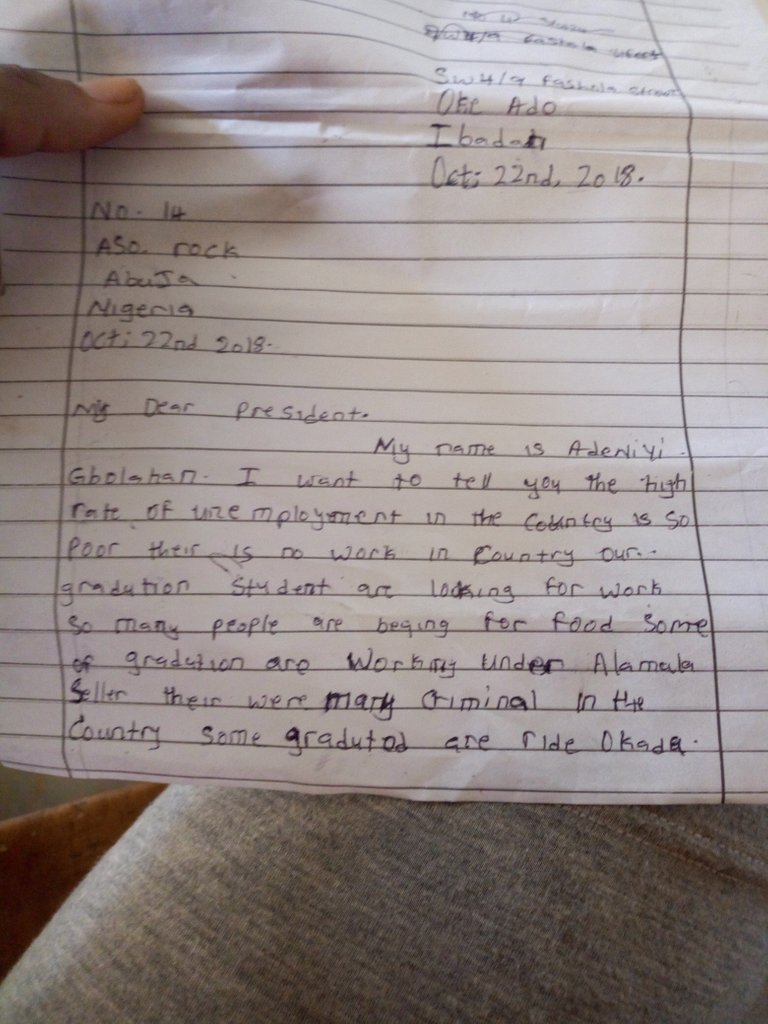 SW4/9 Fashola street
Oke Ado
Ibadan
Oct; 22nd, 2018.
No. 14
ASO. rock
Abuja
Nigeria
Oct; 22nd 2018.
My Dear President.
My name is Adeniyi
Gbolahan. I want to tell you the high
rate of unemployement in the Country is so
Poor their is no work in Country our..
gradution Student are looking for work
so many people are beging for food some
of gradution are working under Alamala
Seller their were many Criminal in the
Country some graduted are ride Okada.